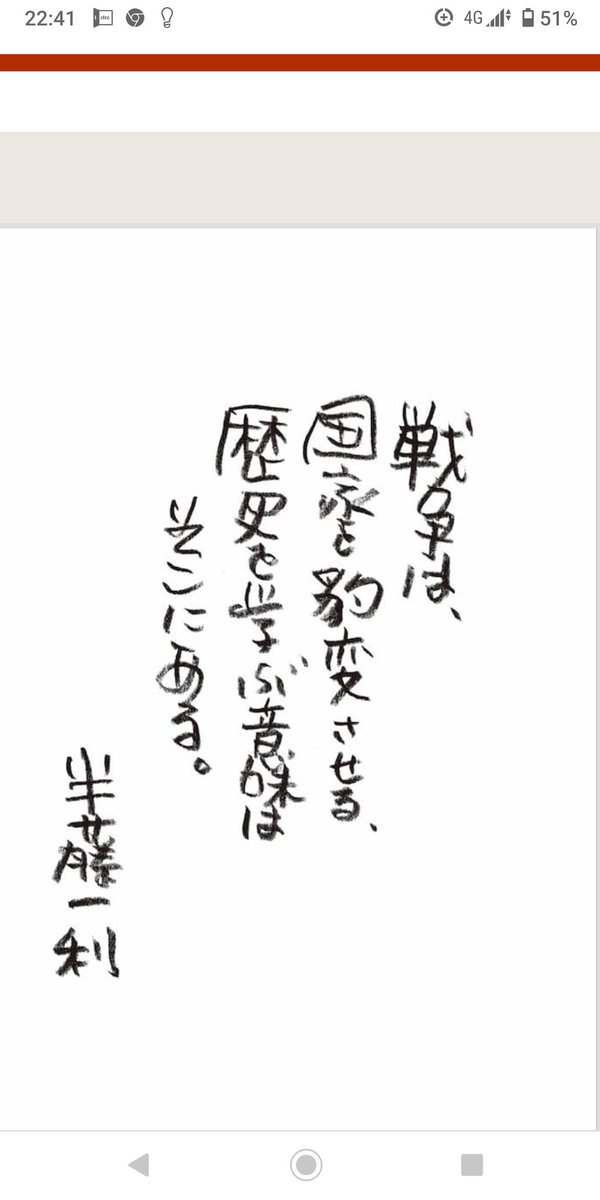 22:41
4G
51%
戦争は、
国家を豹変させる、
歴史を学ぶ意味は
そこにある。
半藤一利